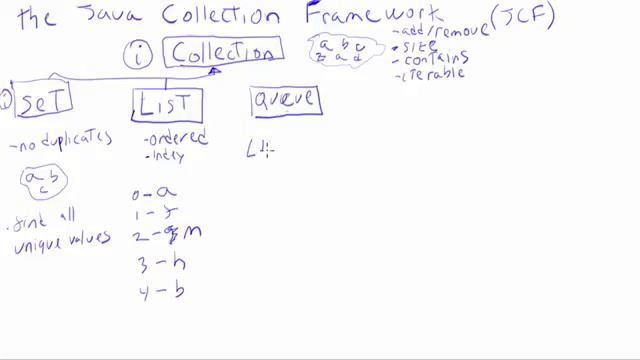 the Java Collection Framework (JCF)
i Collection
a b c
z a d
-add/remove
•size
-contains
-iterable
i SeT
LisT
Queue
-no duplicates
a b
c
•find all
unique values
-ordered
•index
0-a
1-f
2-m
3-h
4-b